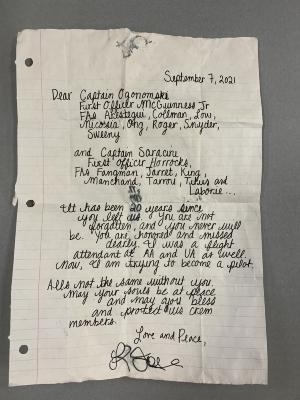 September 7, 2021
Dear Captain Ogonomski
First Officer McGuinness Jr
FAs Arestegui, Collman, Low,
Nicosia, Ong, Roger, Snyder,
Sweeny
and Captain Saracini
First Officer Horrocks,
FAs Fangman, Jarret, King,
Marchand, Tarrou, Titus and
Laborie...
It has been 20 years since
you left us. You are not
forgotten, and you never will
be. You are honored and missed
dearly. I was a flight
attendant at AA and UA as well.
Now, I am trying to become a pilot.
Alls not the same without you.
May your souls be at peace
and may you bless
and protect us crew
members.
Love and Peace,